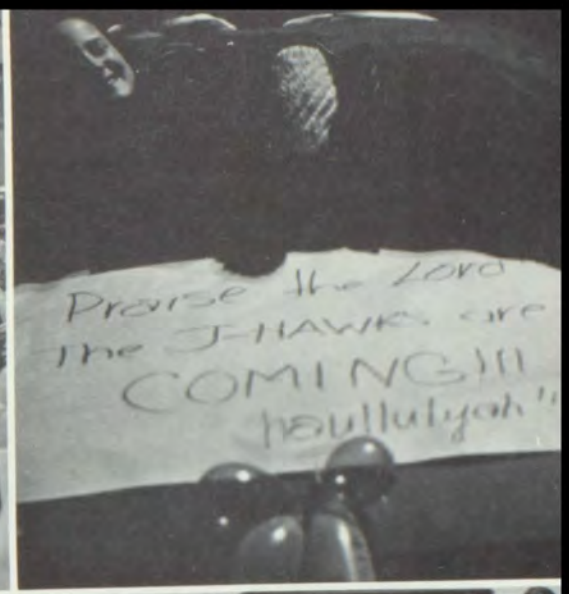 Praise the Lord
The J-HAWKS are
COMING!!!
haullulyah!!